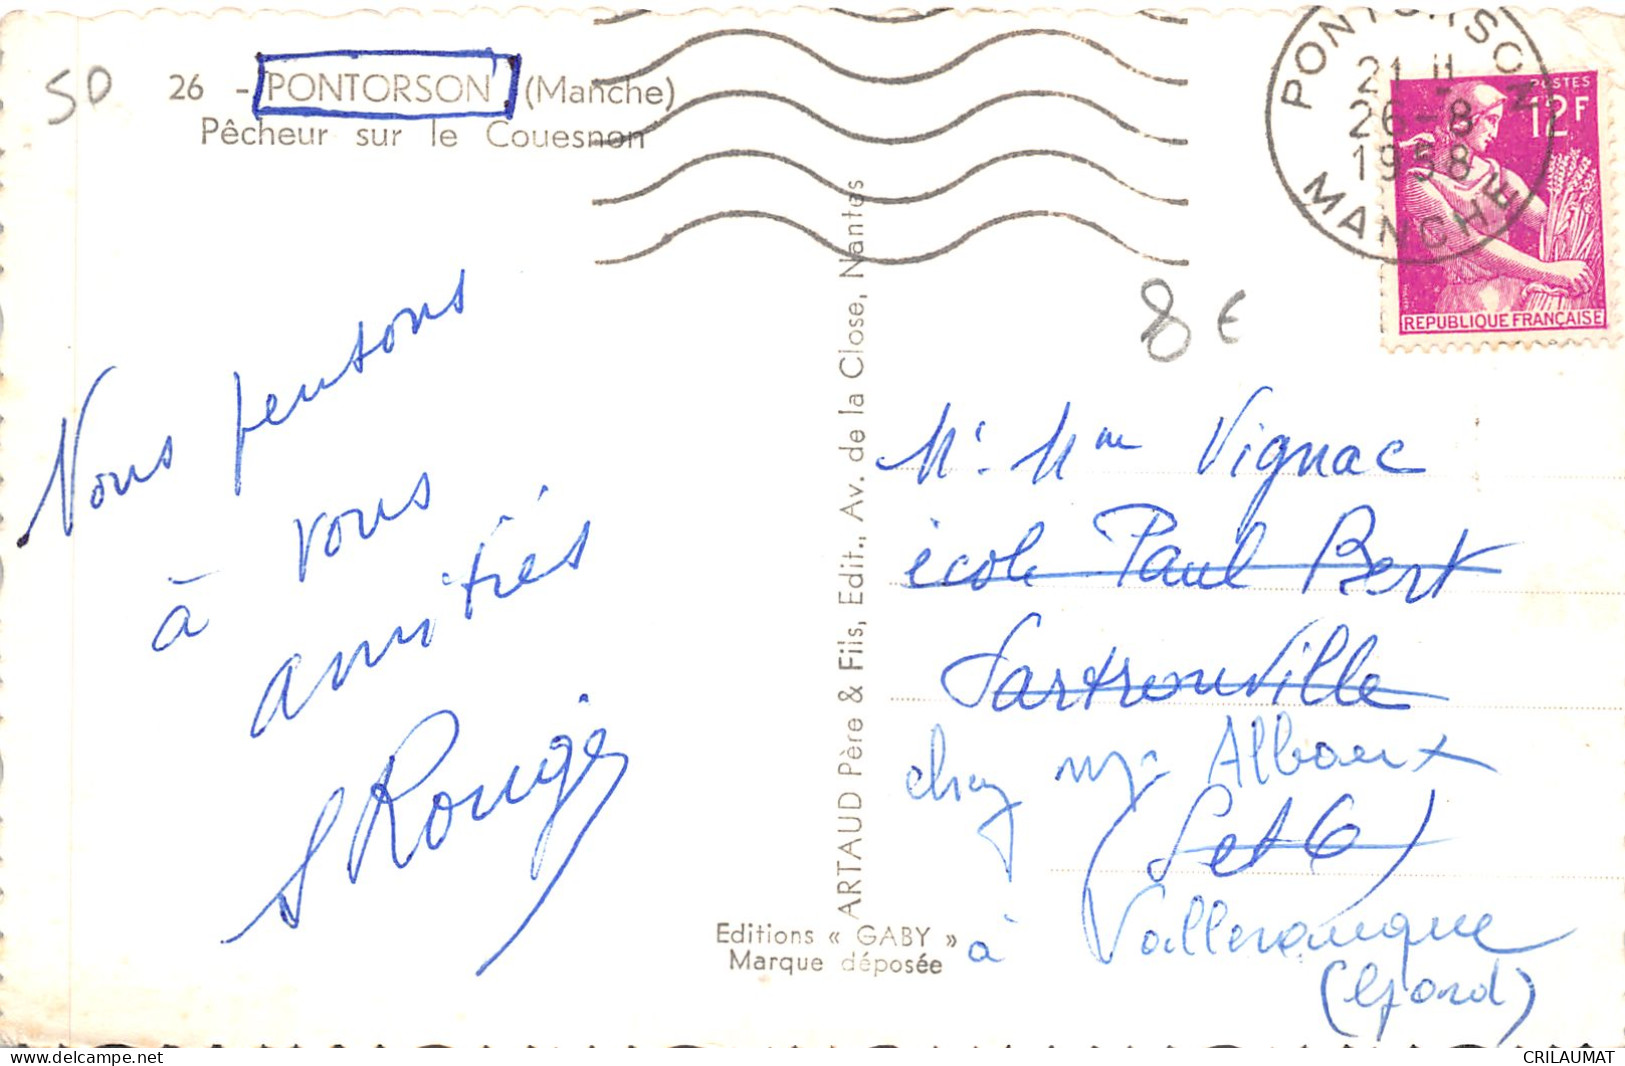 50
26 - PONTORSON (Manche)
Pêcheur sur le Couesnon
PONTORSON
21 H
26-8
1958
MANCHE
POSTES
12F
REPUBLIQUE FRANÇAISE
8 €
Nous pensons
à vous
amitiés
Rouge
ARTAUD Père & Fils, Edit., Av. de la Close, Nantes
Mr Mme Vignac
école Paul Bert
Sartrouville
chez Mr Albaux
(S et O)
à Valleraugue
(Gard)
Editions « GABY »
Marque déposée
www.delcampe.net
CRILAUMAT